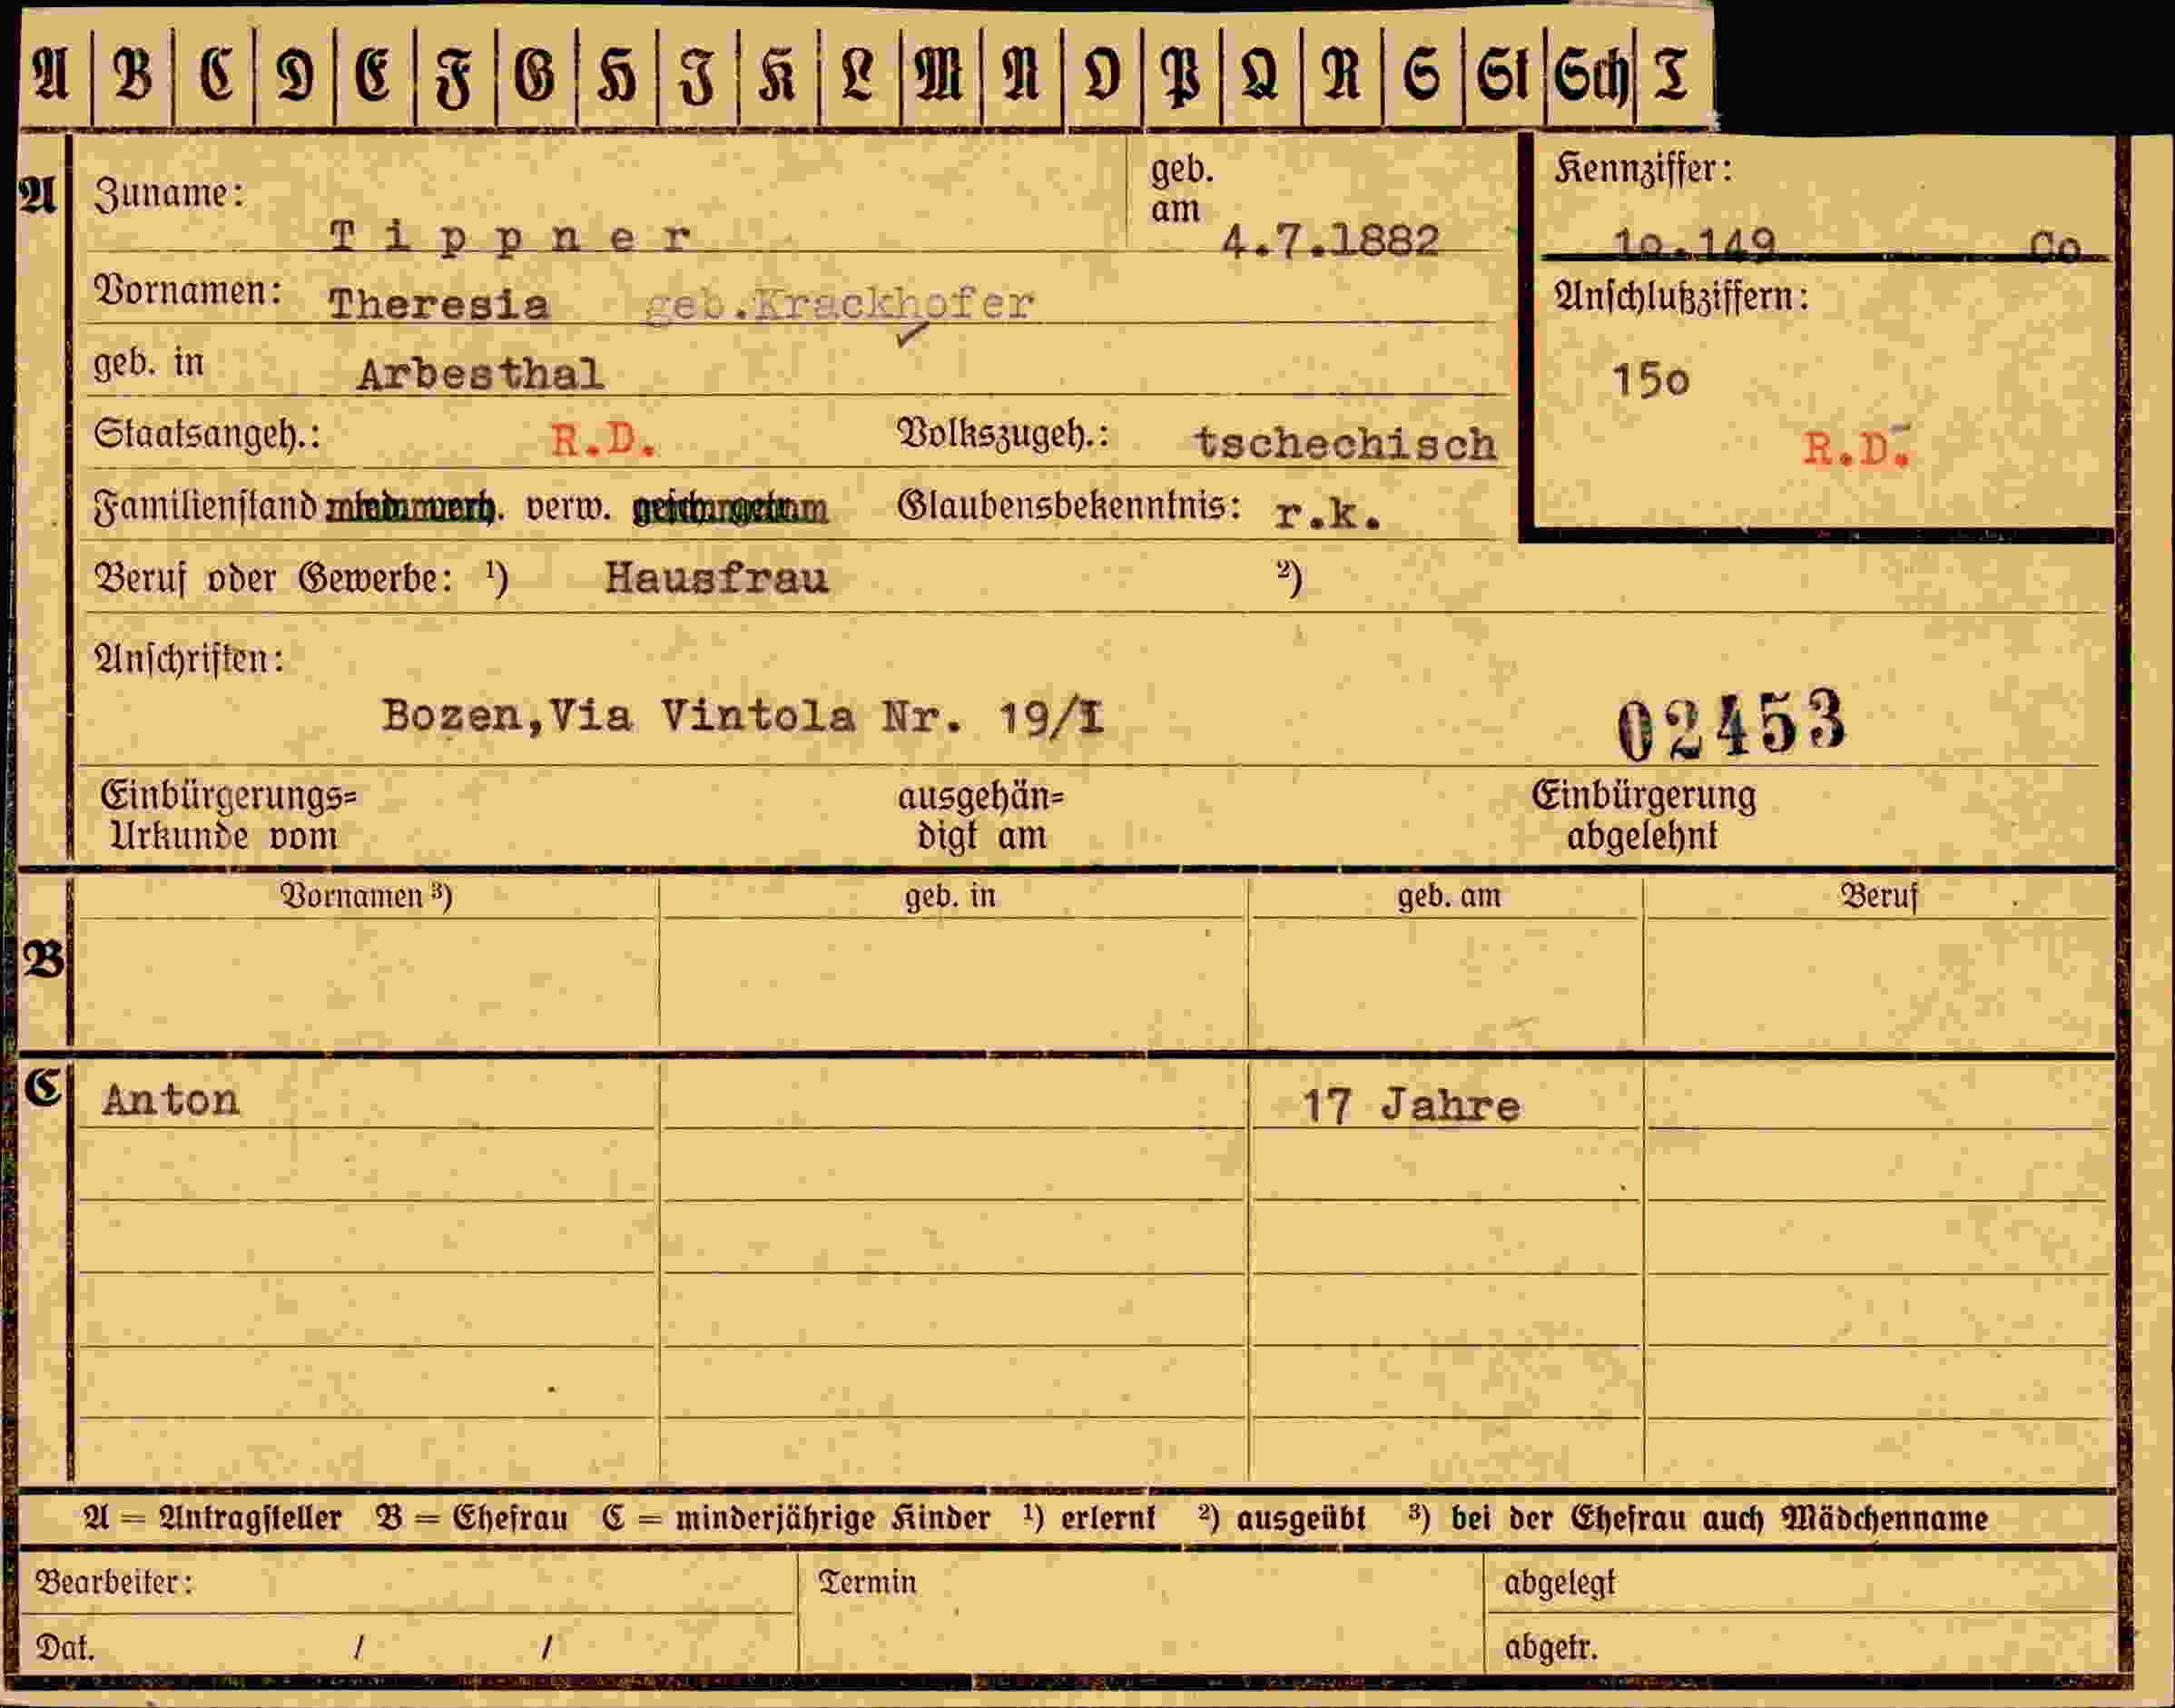 A B C D E F G H I K L M N O P Q R S St Sch T
A Zuname: Tippner geb. am 4.7.1882 Kennziffer: 10.149 Co
Vornamen: Theresia geb.Krackhofer Anschlußziffern:
geb. in Arbesthal 15o
Staatsangeh.: R.D. Volkszugeh.: tschechisch R.D.
Familienstand verw. Glaubensbekenntnis: r.k.
Beruf oder Gewerbe: ¹) Hausfrau ²)
Anschriften:
Bozen,Via Vintola Nr. 19/I 02453
Einbürgerungs= ausgehän= Einbürgerung
Urkunde vom digt am abgelehnt
Vornamen ³) geb. in geb. am Beruf
B
C Anton 17 Jahre
A = Antragsteller B = Ehefrau C = minderjährige Kinder ¹) erlernt ²) ausgeübt ³) bei der Ehefrau auch Mädchenname
Bearbeiter: Termin abgelegt
Dat. / / abgetr.